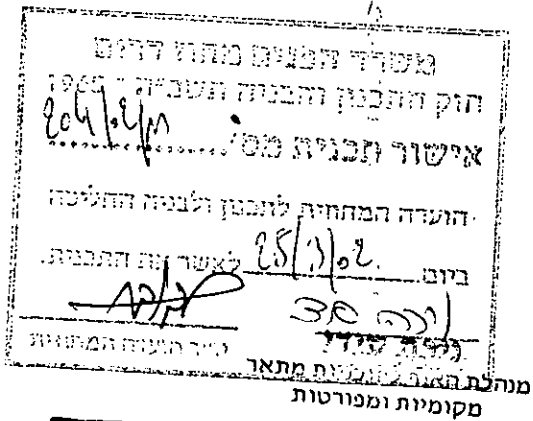 משרד הפנים מחוז דרום
חוק התכנון והבניה תשכ"ה - 1965
אישור תכנית מס'
הועדה המחוזית לתכנון ולבניה החליטה
ביום 25/3/02 לאשר את התכנית.
יו"ר הועדה המחוזית
מנהלת האגף לתוכניות מתאר
מקומיות ומפורטות